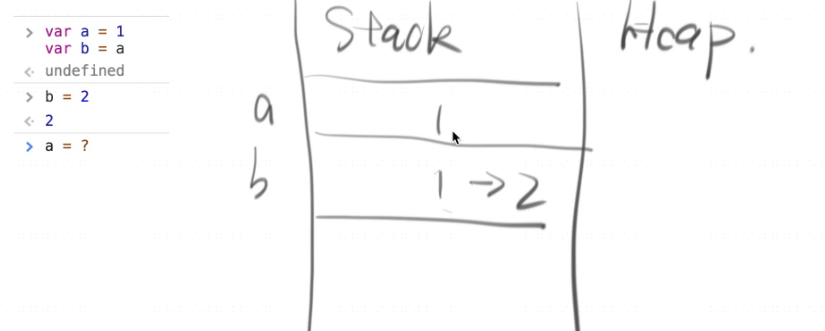 > var a = 1
var b = a
<· undefined
> b = 2
<· 2
> a = ?
Stack
Heap.
a 1
b 1 → 2